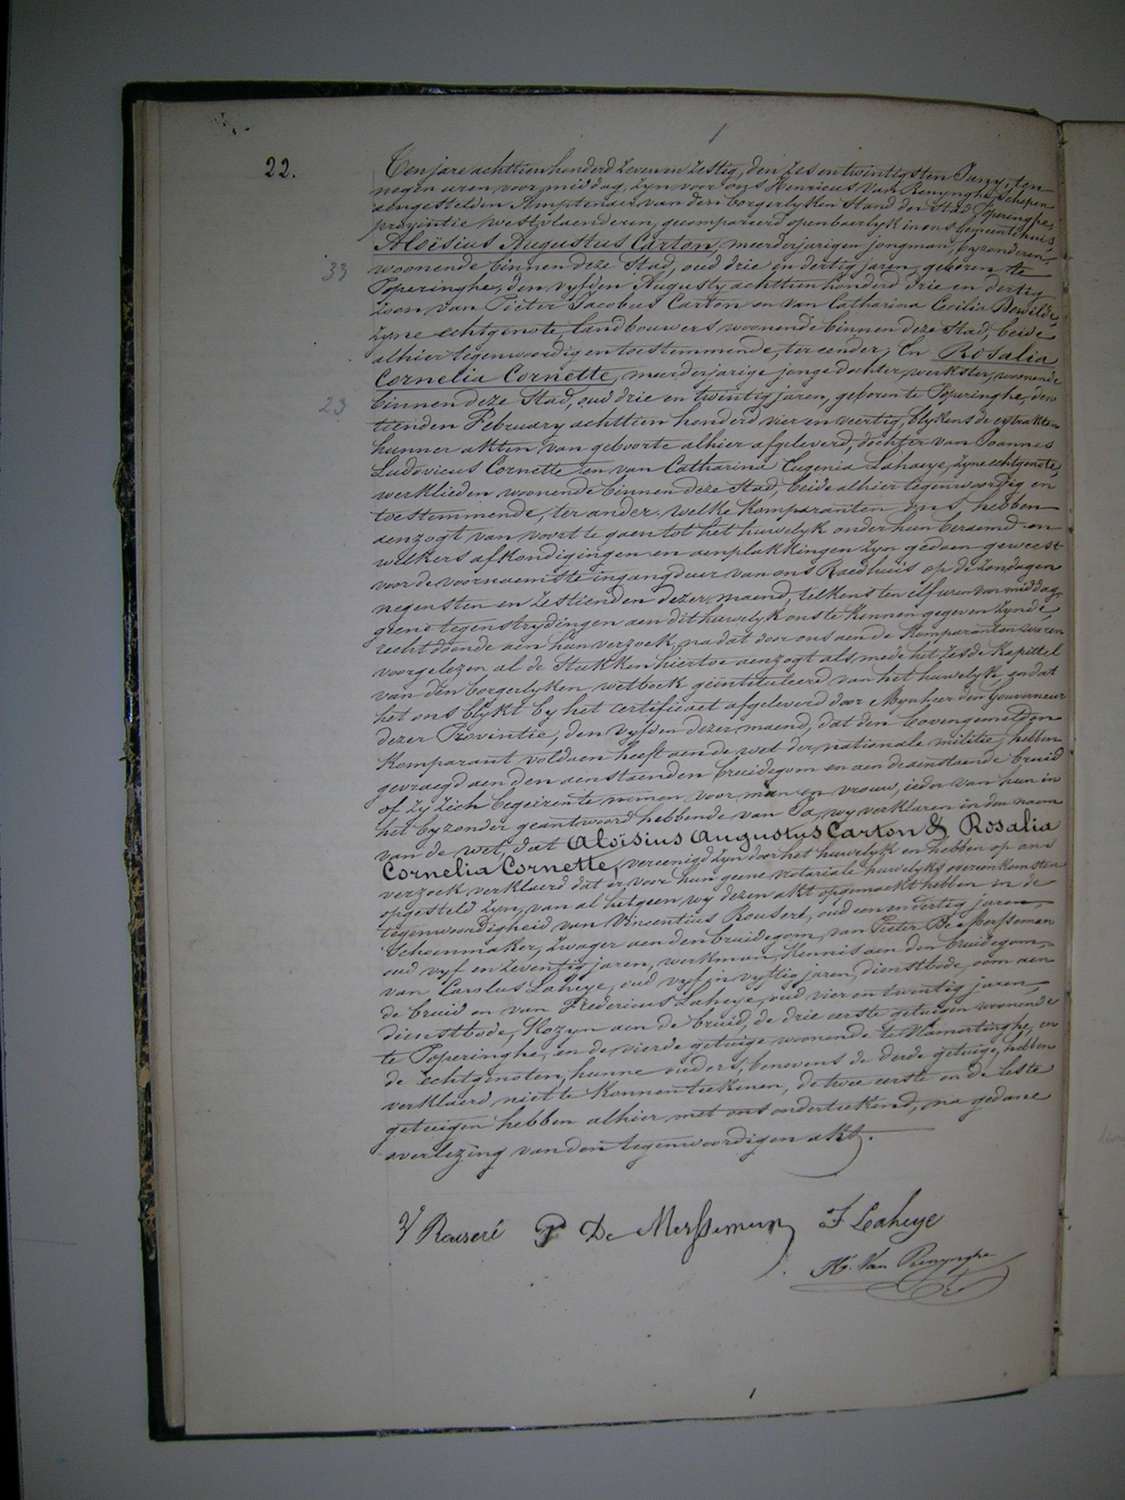 22.
Ten jare achttien honderd zeven en zestig, den zes en twintigsten January, ten
negen uren voor middag, zyn voor ons Henricus Van Renynghe, schepen
aengestelden Amptenaer van den borgerlyken Stand der Stad Poperinghe,
provintie westvlaenderen, gecompareerd openbaerlyk in ons Gemeentehuis,
Aloïsius Augustus Carton, meerderjarigen jongman, byzonderen,
33 woonende binnen deze Stad, oud drie en dertig jaren, geboren te
Poperinghe, den vyfden Augusty achttien honderd drie en dertig
zoon van Pieter Jacobus Carton en van Catharina Cecilia Dewilde,
zyne echtgenote, landbouwers woonende binnen deze Stad, beide
alhier tegenwoordig en toestemmende, ter eender; En Rosalia
Cornelia Cornette, meerderjarige jonge dochter, werkster, woonende
23 binnen deze Stad, oud drie en twintig jaren, geboren te Poperinghe, den
tienden February achttien honderd vier en veertig, blykens de extrakten
hunner akten van geboorte alhier afgeleverd, dochter van Joannes
Ludovicus Cornette en van Catharina Eugenia Lahaeye, zyne echtgenote,
werklieden woonende binnen deze Stad, beide alhier tegenwoordig en
toestemmende, ter ander. welke komparanten ons hebben
aenzogt van voort te gaen tot het huwelyk onder hun beraemd en
welkers afkondigingen en aenplakkingen zyn gedaen geweest
voor de voornaemste ingangdeur van ons Raedhuis op de zondagen
negensten en zestienden dezer maend, telkens ten elf uren voor middag,
geene tegenstrydingen aen dit huwelyk ons te kennen gegeven zynde,
recht doende aen hun verzoek, na dat door ons aen de komparanten waren
voorgelezen al de stukken hiertoe aenzogt als mede het zesde kapittel
van den borgerlyken wetboek geïntituleerd van het huwelyk, en dat
het ons blykt by het certificaet afgeleverd door Mynheer den Gouverneur
dezer Provintie, den vyfden dezer maend, dat den bovengemelden
komparant voldaen heeft aen de wet der nationale militie, hebben
gevraegd aen den aenstaenden bruidegom en aen de aenstaende bruid
of zy zich begeirente nemen voor man en vrouw, ieder van hun in
het byzonder geantwoord hebbende van Ja, wy verklaren in den naem
van de wet, dat Aloïsius Augustus Carton & Rosalia
Cornelia Cornette, vereenigd zyn door het huwelyk en hebben op ons
verzoek verklaerd dat er voor hun geene notariale huwelyks overeenkomsten
opgesteld zyn, van al hetgeen wy dezen akt opgemaekt hebben in de
tegenwoordigheid van Vincentius Rouseré, oud een en dertig jaren,
Schoenmaker, zwager aen den bruidegom, van Pieter De Mersseman
oud vyf en zeventig jaren, werkman, kennis aen den bruidegom,
van Carolus Laheye, oud vyf en vyftig jaren, dienstbode, oom aen
de bruid en van Fredericus Laheye, oud vier en twintig jaren,
dienstbode, kozyn aen de bruid, de drie eerste getuigen woonende
te Poperinghe, en de vierde getuige woonende te Vlamertinghe, en
de echtgenoten, hunne ouders, benevens de derde getuige, hebben
verklaerd niet te konnen teekenen, de twee eerste en de leste
getuigen hebben alhier met ons onderteekend, na gedane
overlezing van den tegenwoordigen akt.
V Rouseré P De Messeman F Laheye
H. Van Renynghe